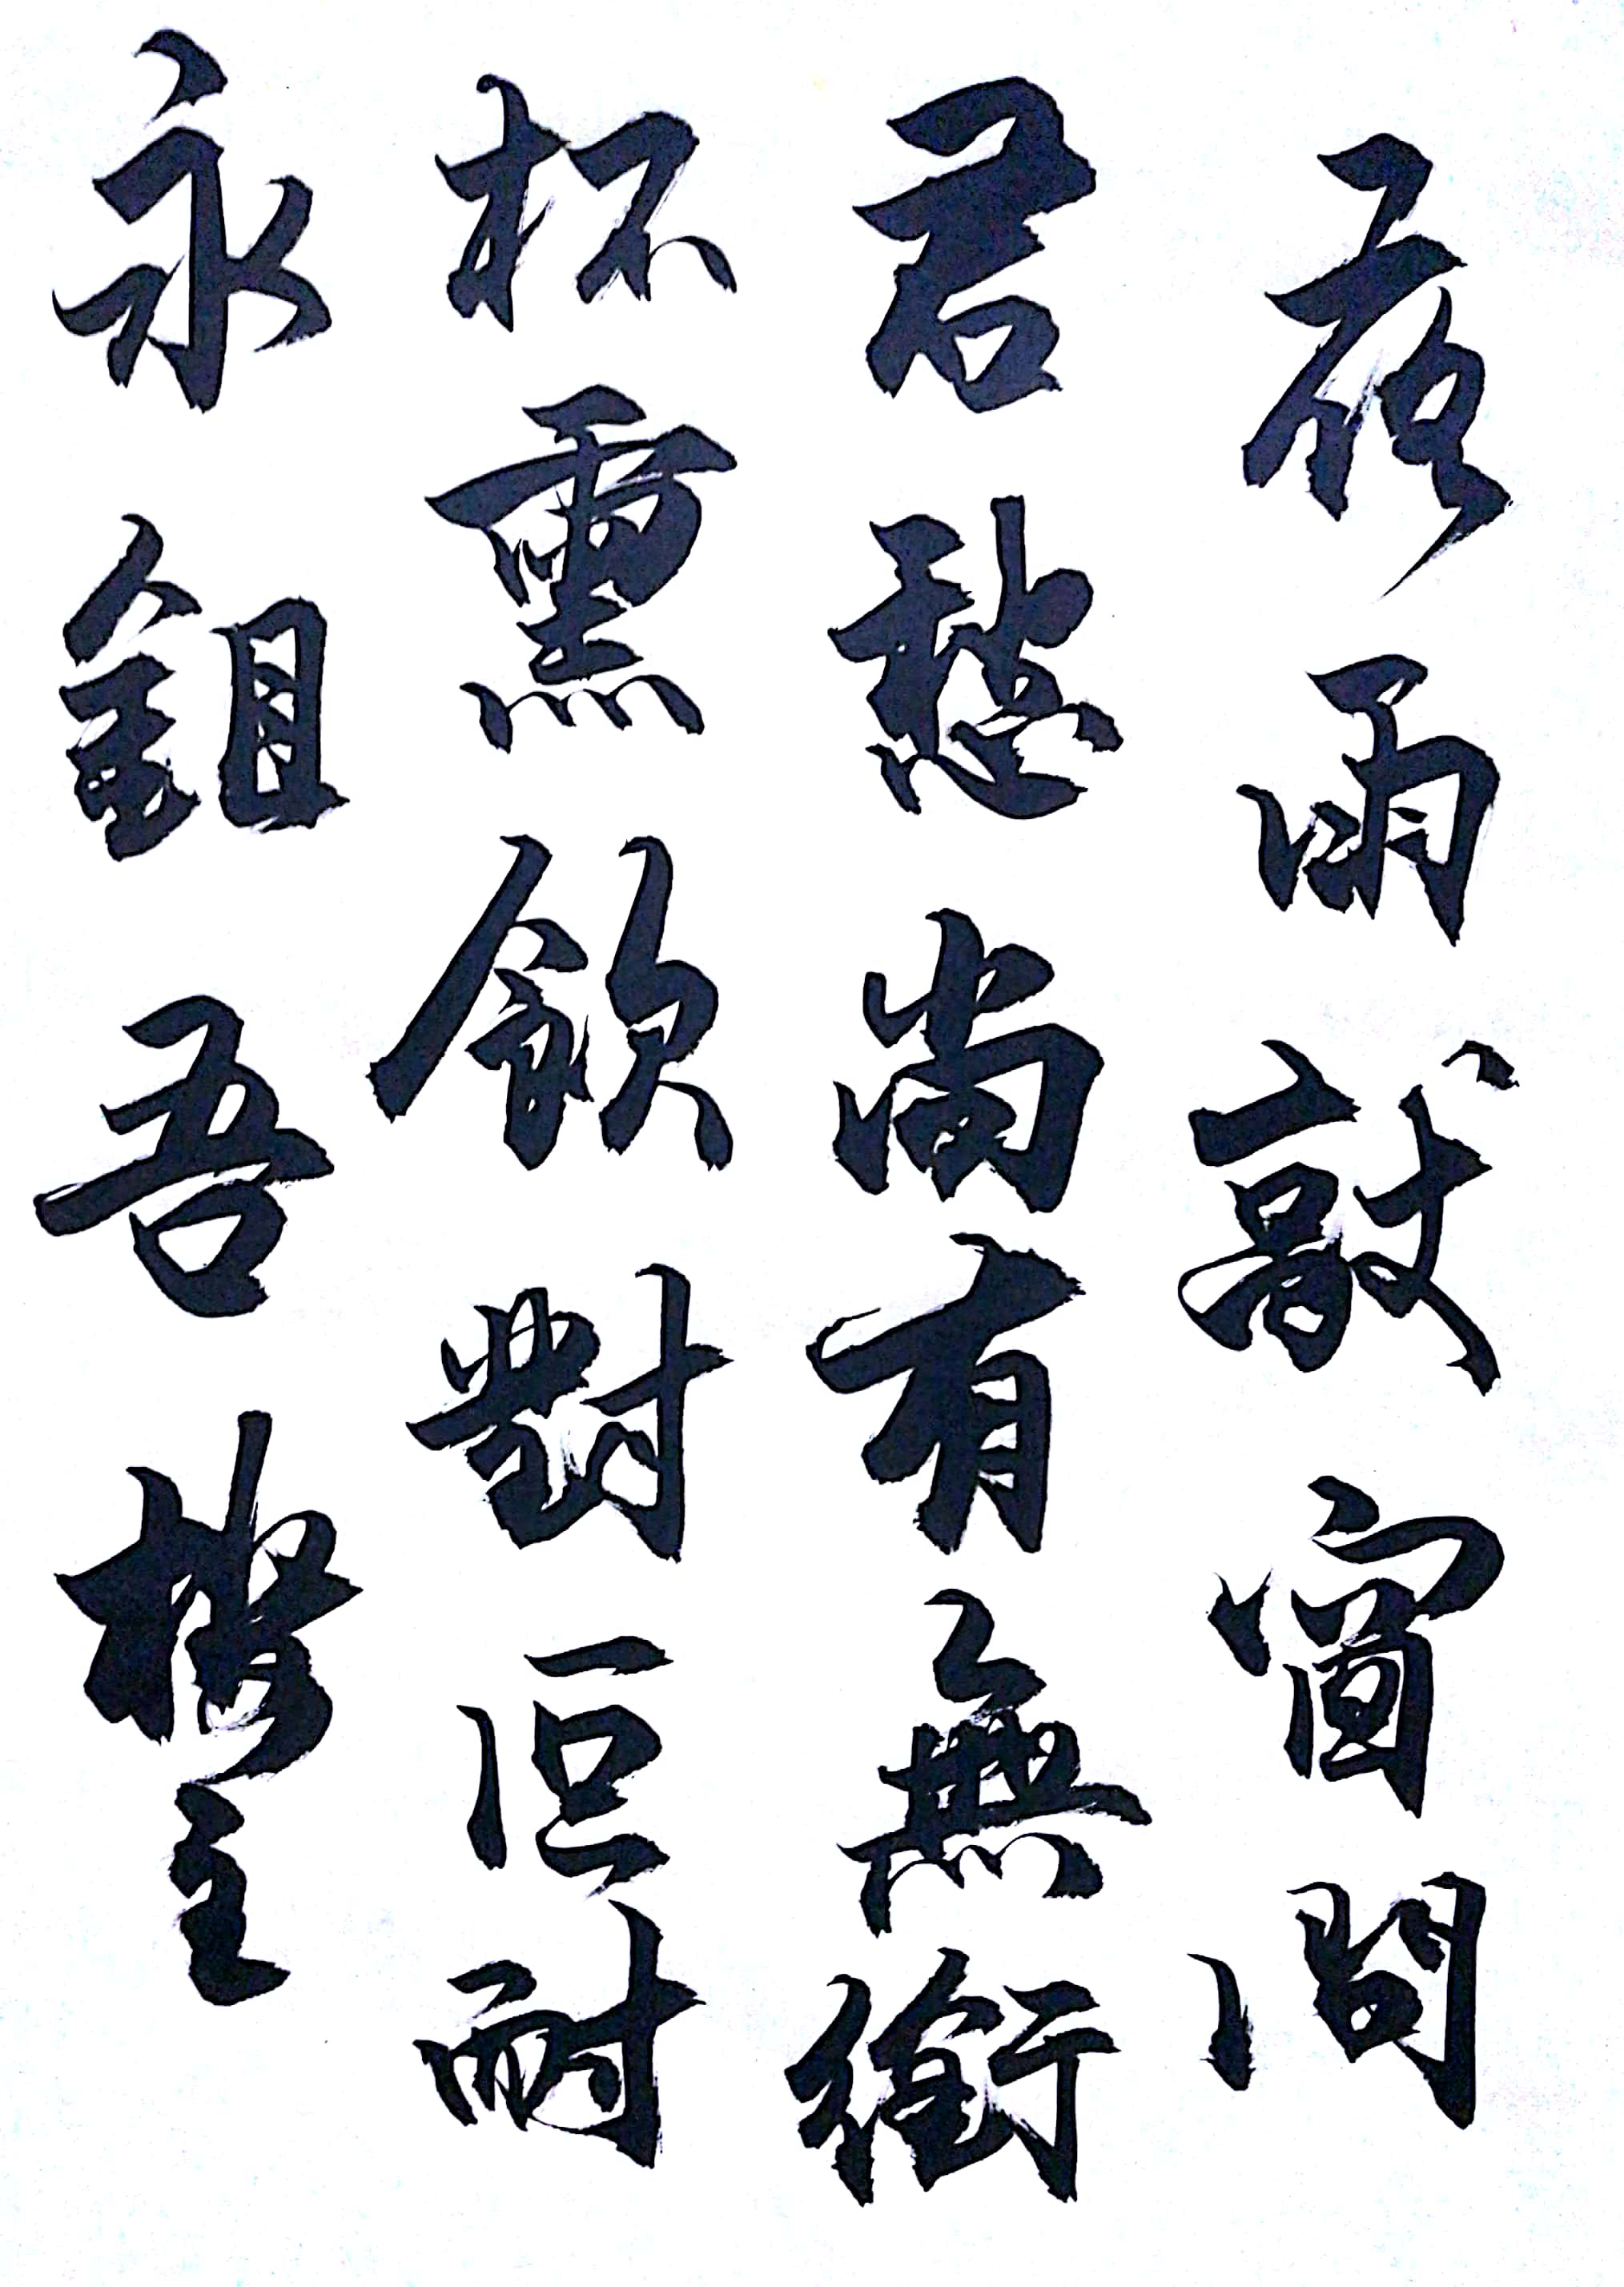 夜雨敲窗問
君愁尚有無銜
杯熏飲對但耐
永鉏吾
主